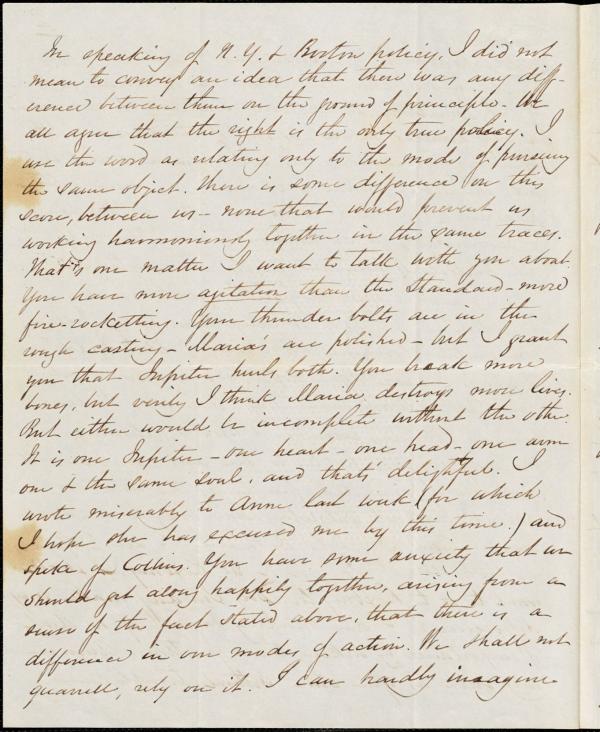 In speaking of N.Y. & Boston policy, I did not
mean to convey an idea that there was any diff-
erence between them on the ground of principle - We
all agree that the right is the only true policy. I
use the word as relating only to the mode of pursuing
the same object. There is some difference on this
score, between us - none that would prevent us
working harmoniously together in the same traces.
That's one matter I want to talk with you about.
You have more agitation than the Standard - more
fire-rocketting. Your thunder bolts are in the
rough casting - Maria's are polished - but I grant
you that Jupiter hurls both. You break more
bones, but verily I think Maria destroys more lives.
But either would be incomplete without the other.
It is one Jupiter - one heart - one head - one arm
one & the same soul, and that's delightful. I
wrote miserably to Anne last week (for which
I hope she has excused me by this time.) and
spoke of Collins. You have some anxiety that we
should get along happily together, arising from a
sense of the fact stated above, that there is a
difference in our modes of action. We shall not
quarrell, rely on it. I can hardly imagine